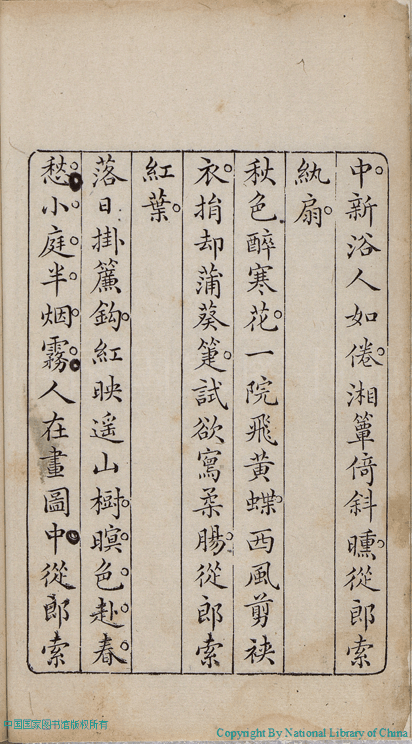 中新浴人如倦湘簟倚斜曛從郎索
紈扇
秋色醉寒花一院飛黃蝶西風剪袂
衣捐却蒲葵箑試欲寫柔腸從郎索
紅葉
落日掛簾鈎紅映遥山樹暝色赴春
愁小庭半烟霧人在畫圖中從郎索
中国国家图书馆版权所有
Copyright By National Library of China